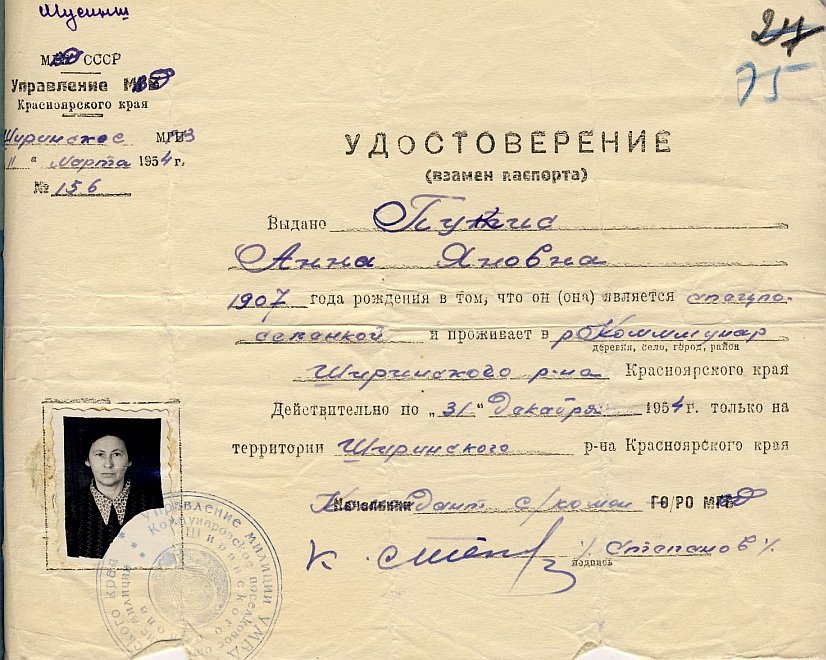 24
75
СССР
Управление МВД
Красноярского края
Ширинское
11 " марта 1954 г.
№ 156
УДОСТОВЕРЕНИЕ
(взамен паспорта)
Выдано
Анна Яновна
1907 года рождения в том, что он (она) является спецпо-
селенкой и проживает в р. Коммунар
деревня, село, город, район
Ширинского р-на Красноярского края
Действительно по „31“ декабря 1954 г. только на
территории Ширинского р-на Красноярского края
Комендант с/комен ГО/РО МВД
К. /Степанов/
подпись
Управление милиции УМВД
Коммунаровское поселковое
Ширинского